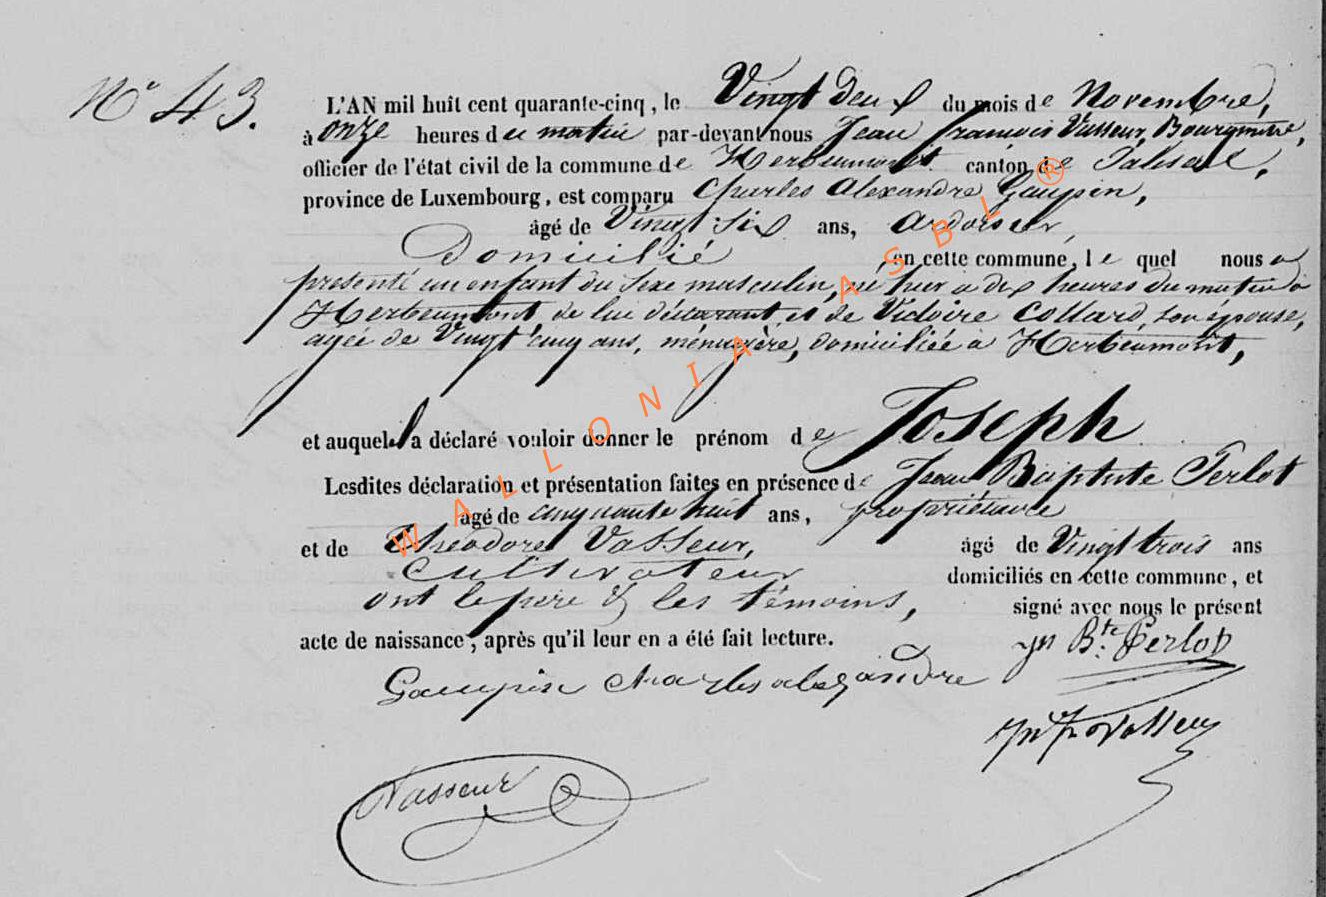 N° 43.
L'AN mil huit cent quarante-cinq, le Vingt deux du mois de Novembre,
à onze heures du matin par-devant nous Jean françois Vasseur, Bourgmestre,
officier de l'état civil de la commune de Herbeumont canton de Paliseul,
province de Luxembourg, est comparu Charles Alexandre Gaupin,
âgé de Vingt six ans, ardoisier,
Domicilié en cette commune, le quel nous a
présenté un enfant du sexe masculin, né hier a dix heures du matin à
Herbeumont de lui déclarant et de Victoire Collard, son épouse,
agée de Vingt cinq ans, ménagère, domiciliée à Herbeumont,
et auquel il a déclaré vouloir donner le prénom de Joseph
Lesdites déclaration et présentation faites en présence de Jean Baptiste Perlot
agé de cinquante huit ans, propriétaire
et de Théodore Vasseur, âgé de Vingt trois ans
Cultivateur domiciliés en cette commune, et
ont le père & les témoins, signé avec nous le présent
acte de naissance, après qu'il leur en a été fait lecture. Jn Bte. Perlot
Gaupin Charles alexandre
Jn Fr Vasseur
Vasseur
WALLONIA ASBL ®